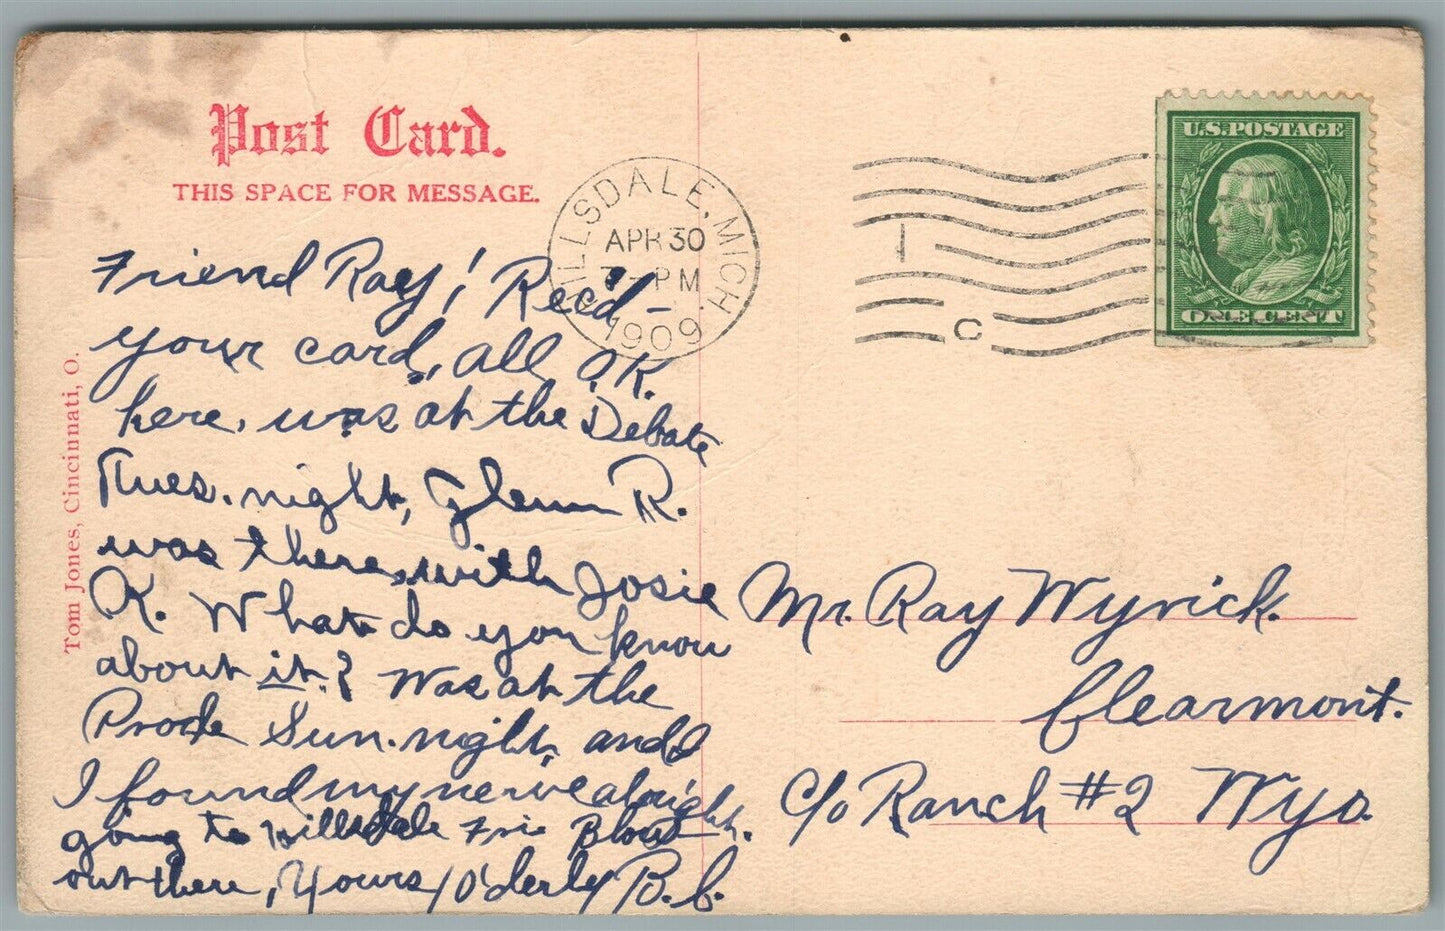 Post Card.
THIS SPACE FOR MESSAGE.
Tom Jones, Cincinnati, O.
HILLSDALE, MICH.
APR 30
PM
1909
C
U.S. POSTAGE
ONE CENT
Friend Ray! Rec'd -
your card, all O.K.
here, was at the Debate
Tues. night, Glenn R.
was there, with Josie
K. What do you know
about it? Was at the
Sun. night, and
I found my nerve alright.
going to Hillsdale Fri
out there, Yours B. C.
Mr. Ray Wyrick.
Clearmont.
c/o Ranch #2 Wyo.